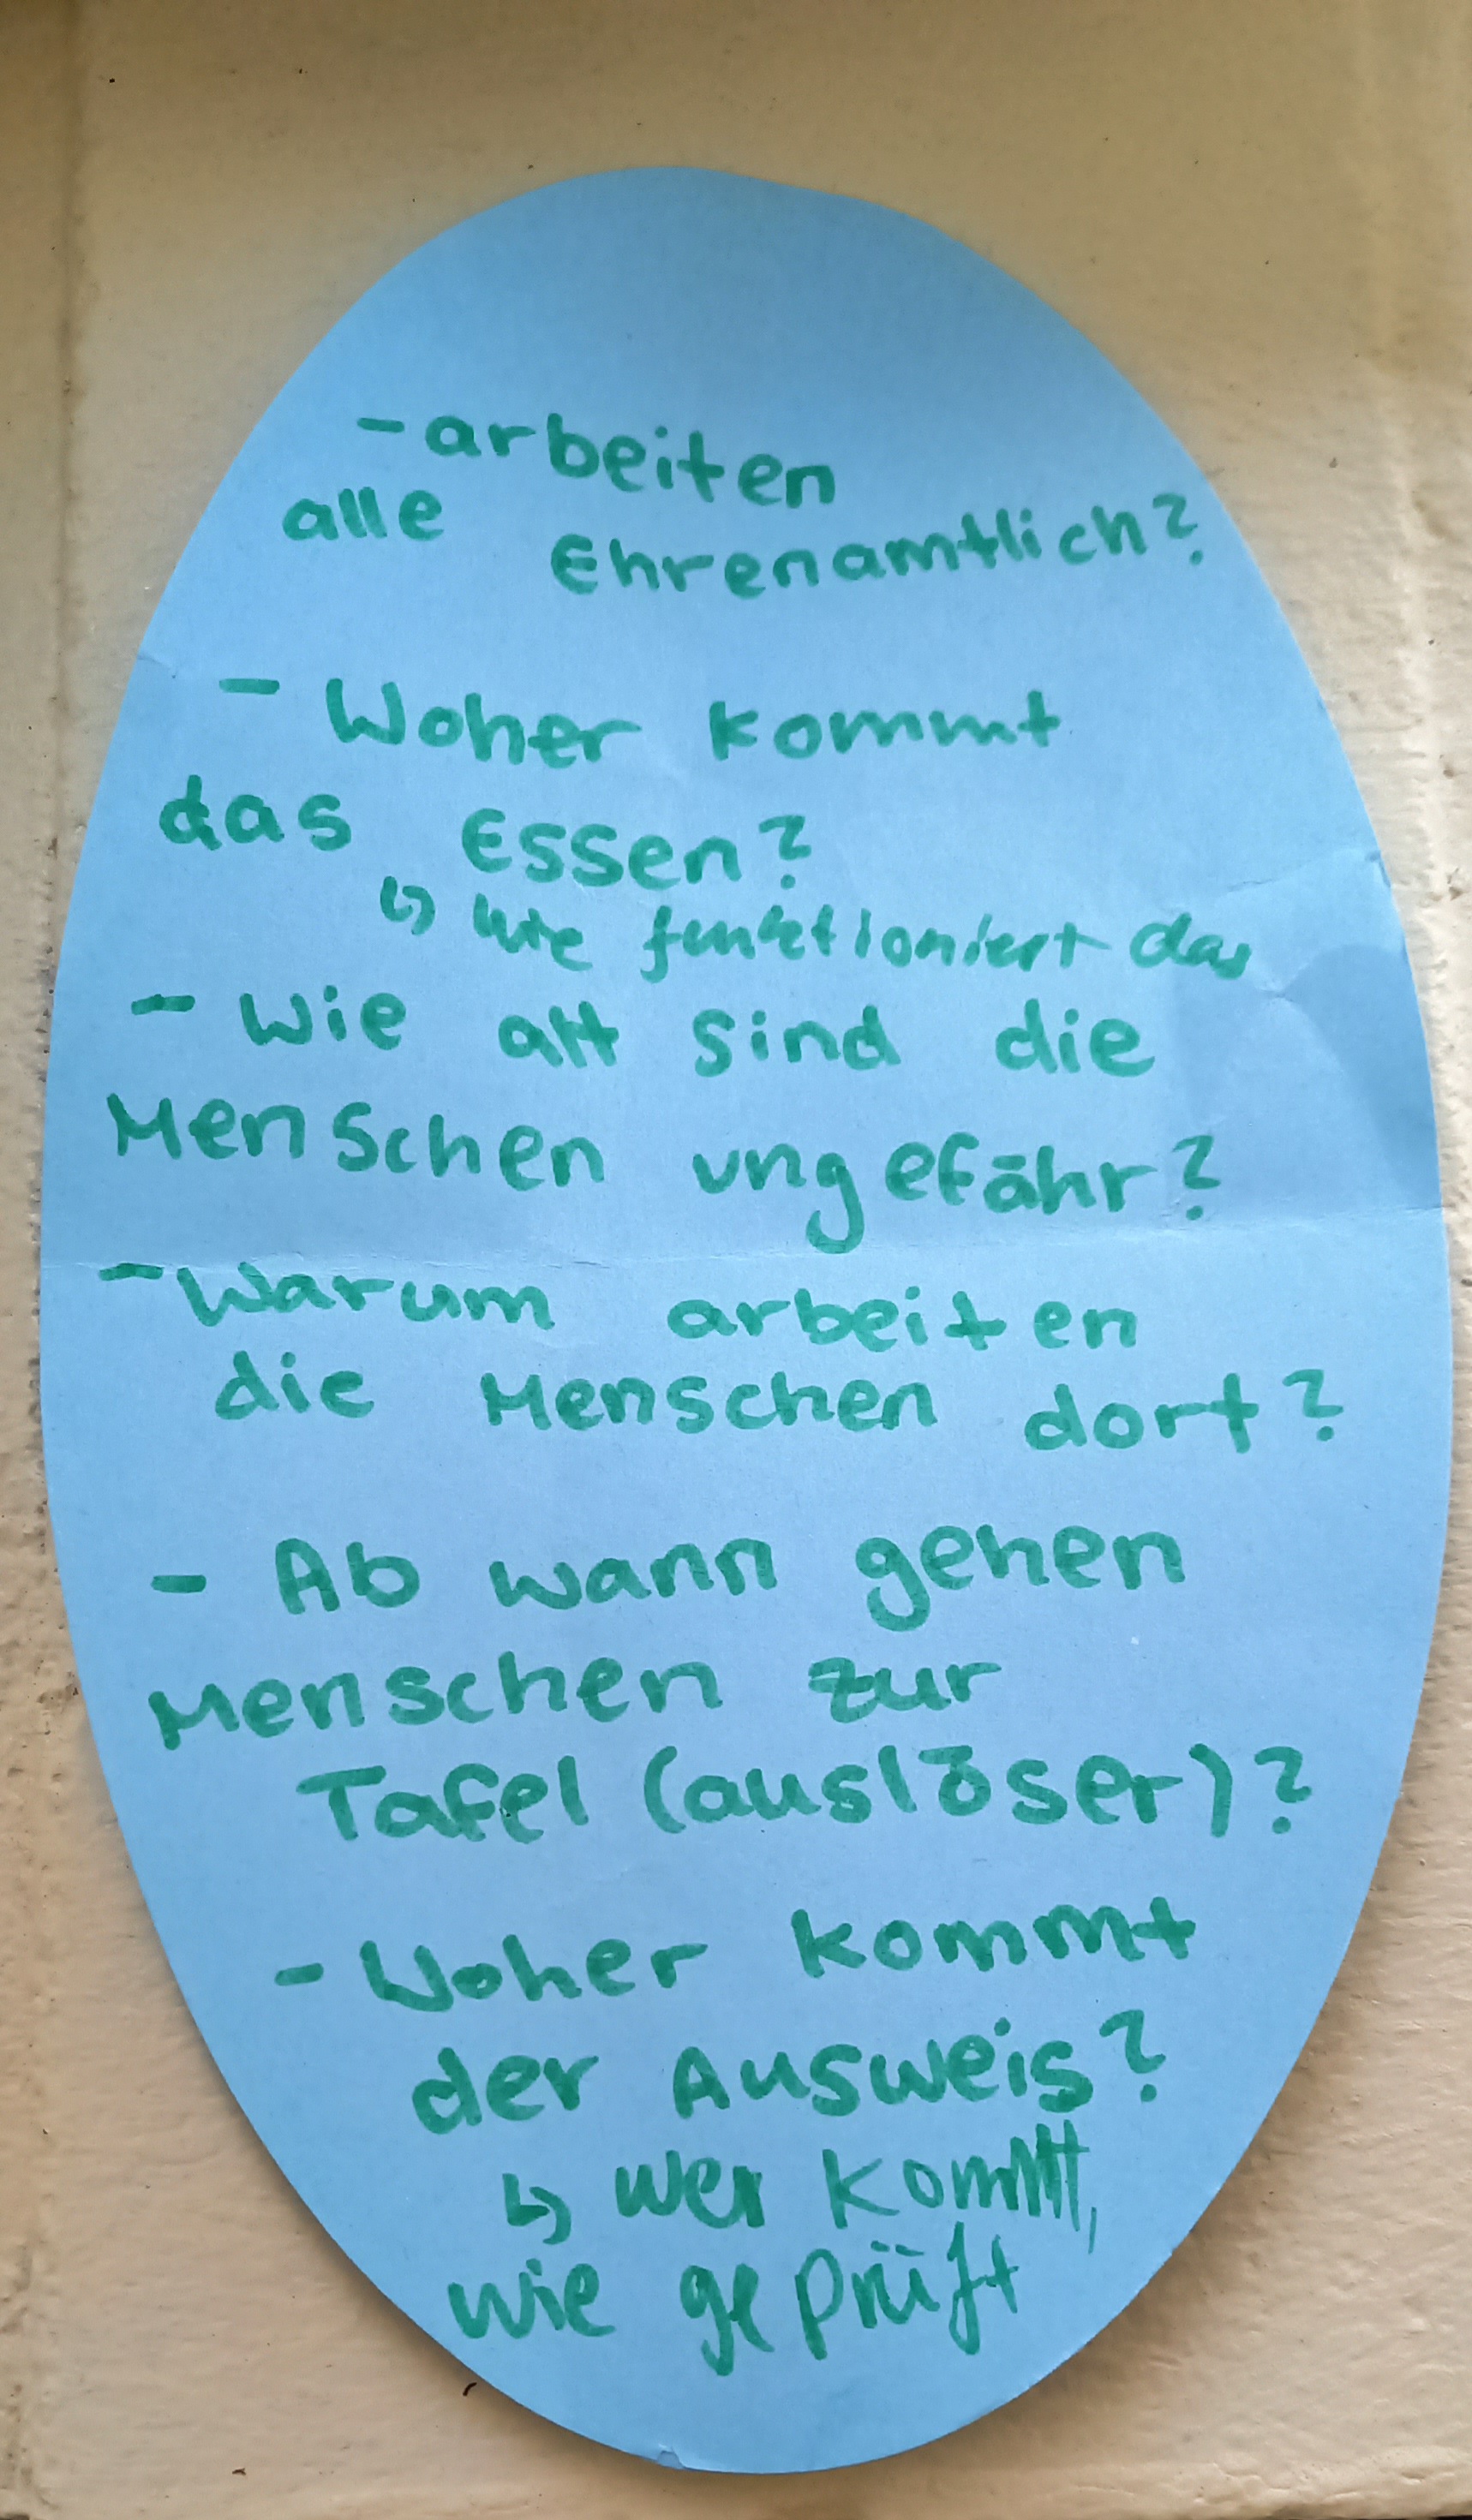 - arbeiten
alle Ehrenamtlich?
- Woher kommt
das Essen?
↳ wie funktioniert das
- Wie alt sind die
Menschen ungefähr?
- Warum arbeiten
die Menschen dort?
- Ab wann gehen
Menschen zur
Tafel (auslöser)?
- Woher kommt
der Ausweis?
↳ wer kommt,
wie geprüft